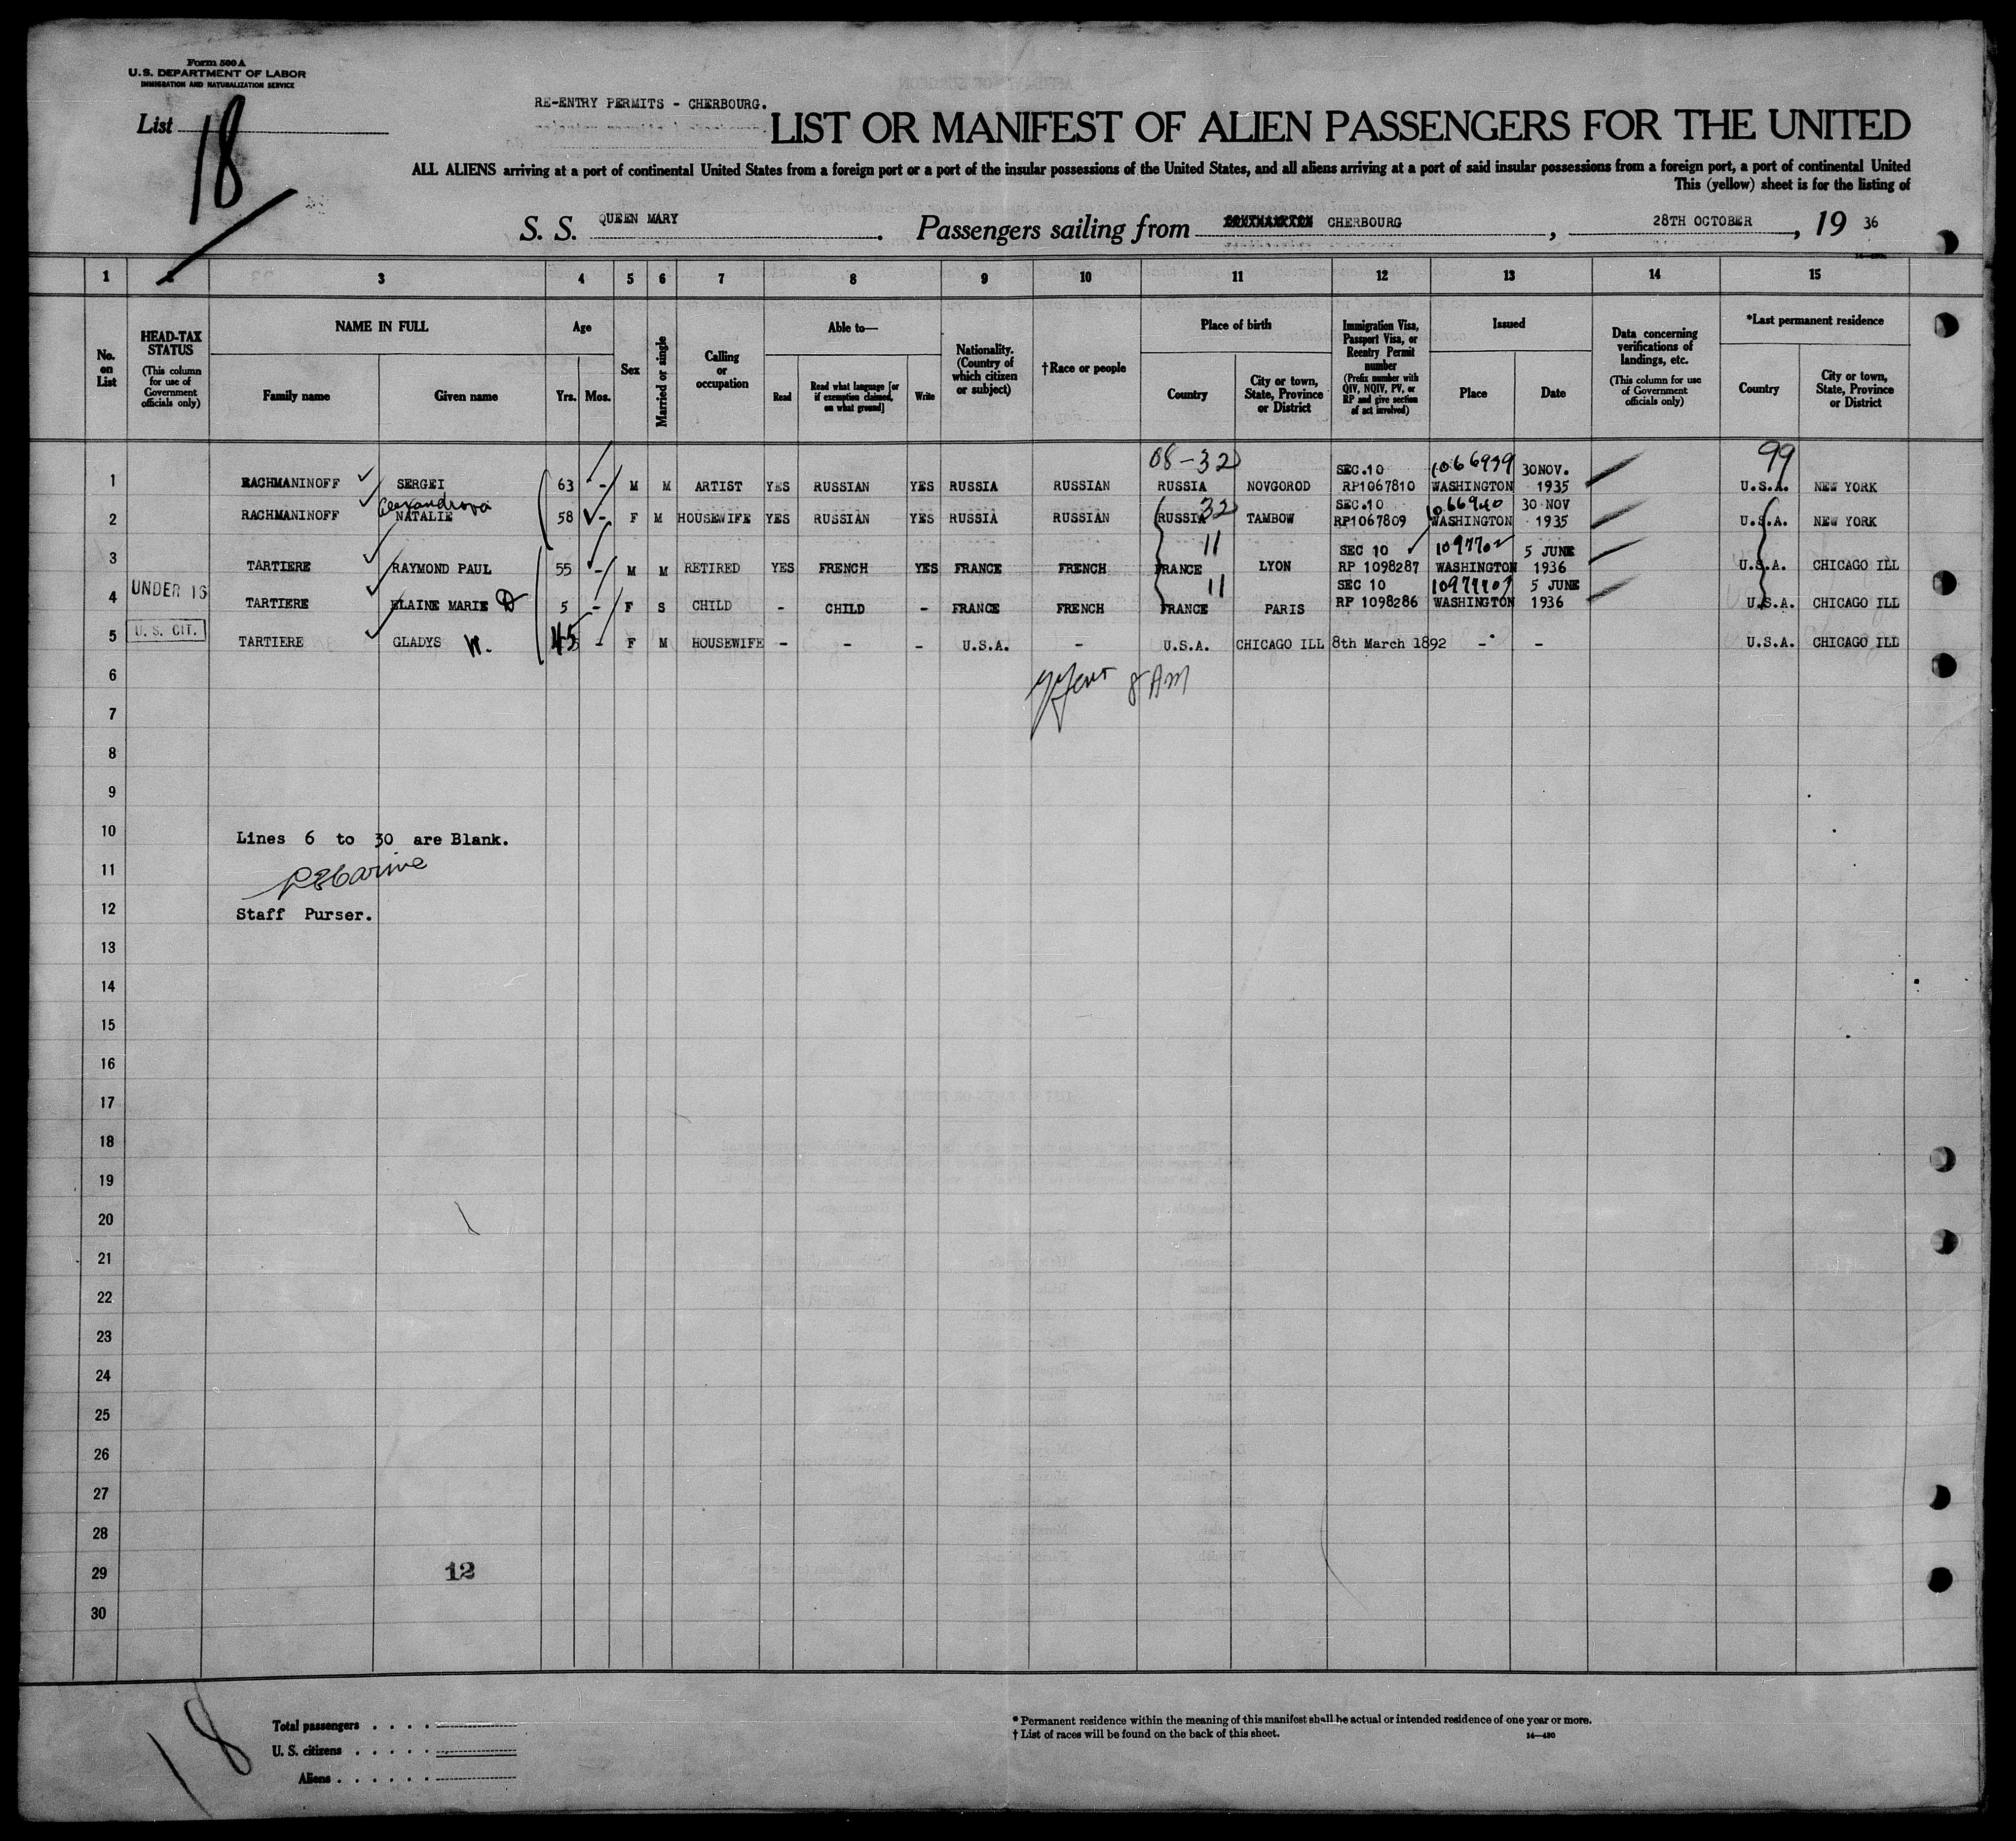 Form 500 A
U. S. DEPARTMENT OF LABOR
IMMIGRATION AND NATURALIZATION SERVICE
List 18
RE-ENTRY PERMITS - CHERBOURG.
LIST OR MANIFEST OF ALIEN PASSENGERS FOR THE UNITED
ALL ALIENS arriving at a port of continental United States from a foreign port or a port of the insular possessions of the United States, and all aliens arriving at a port of said insular possessions from a foreign port, a port of continental United
This (yellow) sheet is for the listing of
S. S. QUEEN MARY. Passengers sailing from SOUTHAMPTON CHERBOURG, 28TH OCTOBER, 19 36
1 2 3 4 5 6 7 8 9 10 11 12 13 14 15
No. on List
HEAD-TAX STATUS (This column for use of Government officials only)
NAME IN FULL
Family name Given name
Age
Yrs. Mos.
Sex
Married or single
Calling or occupation
Able to—
Read Read what language [or if exemption claimed, on what ground] Write
Nationality. (Country of which citizen or subject)
†Race or people
Place of birth
Country City or town, State, Province or District
Immigration Visa, Passport Visa, or Reentry Permit number (Prefix number with QIV, NQIV, PV, or RP and give section of act involved)
Issued
Place Date
Data concerning verifications of landings, etc. (This column for use of Government officials only)
*Last permanent residence
Country City or town, State, Province or District
08-32 SEC.10 1066939 30NOV. 99
1 RACHMANINOFF SERGEI 63 - M M ARTIST YES RUSSIAN YES RUSSIA RUSSIAN RUSSIA NOVGOROD RP1067810 WASHINGTON 1935 U.S.A. NEW YORK
Alexandrova 32 SEC.10 1066940 30 NOV
2 RACHMANINOFF NATALIE 58 - F M HOUSEWIFE YES RUSSIAN YES RUSSIA RUSSIAN RUSSIA TAMBOW RP1067809 WASHINGTON 1935 U.S.A. NEW YORK
11 SEC 10 1097702 5 JUNE
3 TARTIERE RAYMOND PAUL 55 - M M RETIRED YES FRENCH YES FRANCE FRENCH FRANCE LYON RP 1098287 WASHINGTON 1936 U.S.A. CHICAGO ILL
UNDER 16 11 SEC 10 5 JUNE
4 TARTIERE ELAINE MARIE D 5 - F S CHILD - CHILD - FRANCE FRENCH FRANCE PARIS RP 1098286 WASHINGTON 1936 U.S.A. CHICAGO ILL
U. S. CIT.
5 TARTIERE GLADYS W. 45 - F M HOUSEWIFE - - - U.S.A. - U.S.A. CHICAGO ILL 8th March 1892 - - U.S.A. CHICAGO ILL
6
8 AM
7
8
9
10 Lines 6 to 30 are Blank.
11
12 Staff Purser.
13
14
15
16
17
18
19
20
21
22
23
24
25
26
27
28
29 12
30
18
Total passengers
U. S. citizens
Aliens
* Permanent residence within the meaning of this manifest shall be actual or intended residence of one year or more.
† List of races will be found on the back of this sheet.
14—430